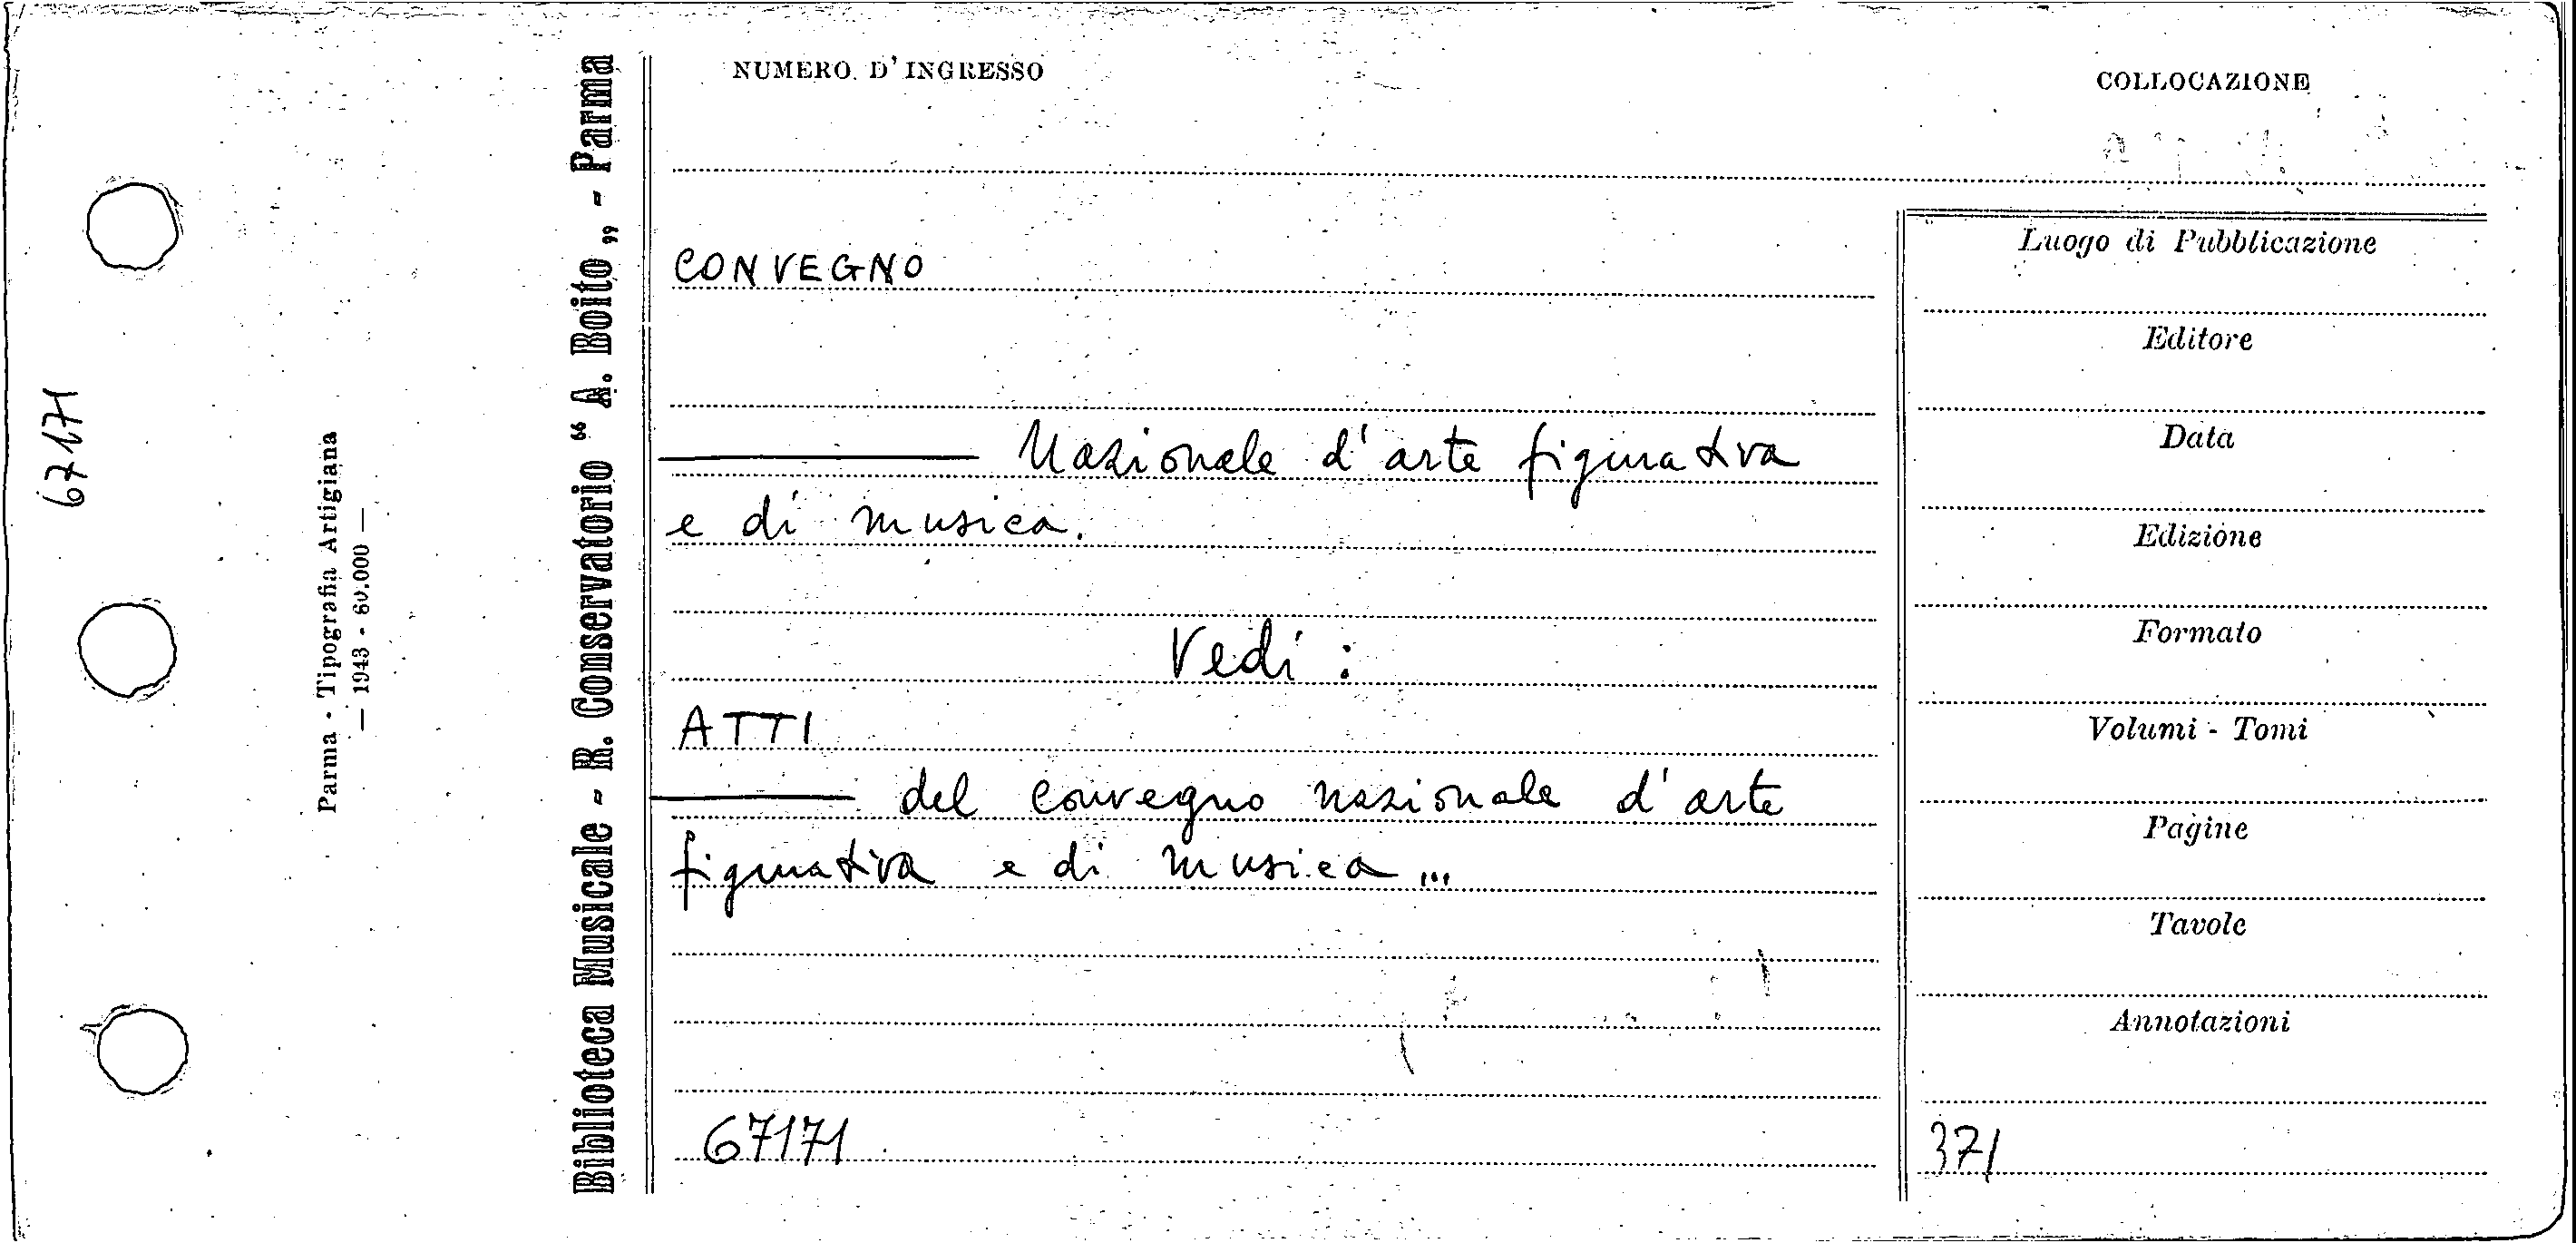 67171
Parma - Tipografia Artigiana
— 1943 - 60.000 —
Biblioteca Musicale - R. Conservatorio “ A. Boito „ - Parma
NUMERO D'INGRESSO
COLLOCAZIONE
CONVEGNO
——— Nazionale d'arte figurativa
e di musica.
Vedi :
ATTI
——— del convegno nazionale d'arte
figurativa e di musica ...
67171
Luogo di Pubblicazione
Editore
Data
Edizione
Formato
Volumi - Tomi
Pagine
Tavole
Annotazioni
371